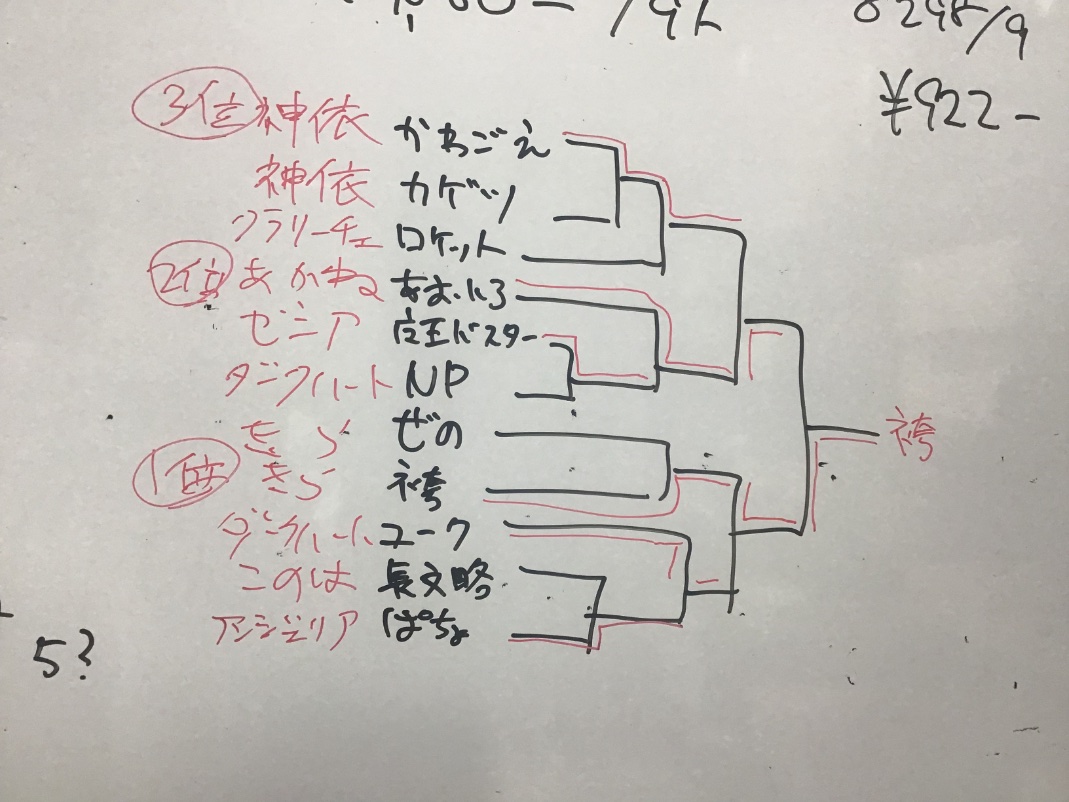 ¥922-
3位 神依 かわごえ
神依 カゲツ
クラリーチェ ロケット
2位 あかね あおいにろ
ゼニア 店王バスター
ダークハート NP
きら ぜの
1位 きら 袴
袴
ダークハート ユーク
このは 長文略
アンジェリア ぱちょ
5?